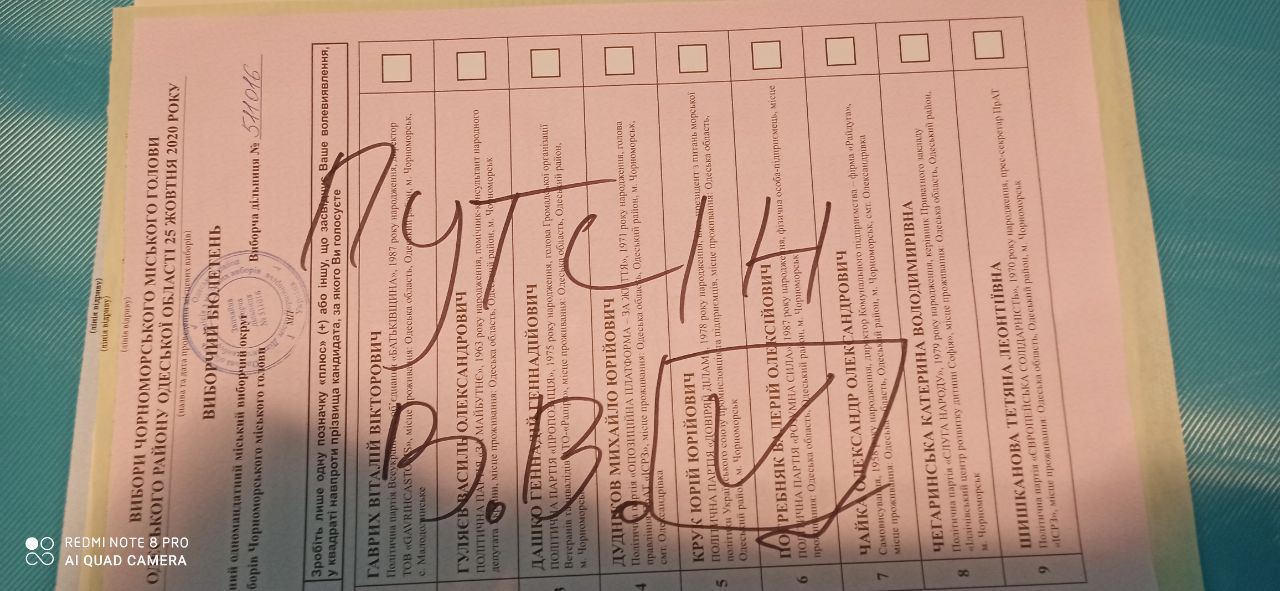 (лінія відриву)
(лінія відриву)
(лінія відриву)
ВИБОРИ ЧОРНОМОРСЬКОГО МІСЬКОГО ГОЛОВИ
РАЙОНУ ОДЕСЬКОЇ ОБЛАСТІ 25 ЖОВТНЯ 2020 РОКУ
(назва та дата проведення місцевих виборів)
ВИБОРЧИЙ БЮЛЕТЕНЬ
одномандатний міський виборчий округ
Чорноморського міського голови Виборча дільниця № 511016
Зробіть лише одну позначку «плюс» (+) або іншу, що засвідчує Ваше волевиявлення,
у квадраті навпроти прізвища кандидата, за якого Ви голосуєте
ГАВРИХ ВІТАЛІЙ ВІКТОРОВИЧ
Політична партія «БАТЬКІВЩИНА», 1987 року народження, директор
ТОВ місце проживання: Одеська область, Одеський район, м. Чорноморськ,
с. Малодолинське
ГУЛЯЄВ ВАСИЛЬ ОЛЕКСАНДРОВИЧ
ПОЛІТИЧНА ПАРТІЯ «ЗА МАЙБУТНЄ», 1963 року народження, помічник-консультант народного
депутата України, місце проживання: Одеська область, Одеський район, м. Чорноморськ
ДАШКО ГЕННАДІЙ ГЕННАДІЙОВИЧ
ПОЛІТИЧНА ПАРТІЯ «ПРОПОЗИЦІЯ», 1975 року народження, голова Громадської організації
Ветеранів та інвалідів місце проживання: Одеська область, Одеський район,
м. Чорноморськ
4
ДУДНИКОВ МИХАЙЛО ЮРІЙОВИЧ
Політична партія «ОПОЗИЦІЙНА ПЛАТФОРМА – ЗА ЖИТТЯ», 1971 року народження, голова
правління ПрАТ «ІСРЗ», місце проживання: Одеська область, Одеський район, м. Чорноморськ,
смт. Олександрівка
5
КРУК ЮРІЙ ЮРІЙОВИЧ
ПОЛІТИЧНА ПАРТІЯ «ДОВІРЯЙ ДІЛАМ», 1978 року народження, президент з питань морської
політики Українського союзу промисловців та підприємців, місце проживання: Одеська область,
Одеський район, м. Чорноморськ
6
ПОГРЕБНЯК ВАЛЕРІЙ ОЛЕКСІЙОВИЧ
ПОЛІТИЧНА ПАРТІЯ «РОЗУМНА СИЛА», 1987 року народження, фізична особа-підприємець, місце
проживання: Одеська область, Одеський район, м. Чорноморськ
7
ЧАЙКА ОЛЕКСАНДР ОЛЕКСАНДРОВИЧ
Самовисування, 1958 року народження, директор Комунального підприємства – фірма «Райдуга»,
місце проживання: Одеська область, Одеський район, м. Чорноморськ, смт. Олександрівка
8
ЧЕГАРИНСЬКА КАТЕРИНА ВОЛОДИМИРІВНА
Політична партія «СЛУГА НАРОДУ», 1979 року народження, керівник Приватного закладу
«Іллічівський центр розвитку дитини Софія», місце проживання: Одеська область, Одеський район,
м. Чорноморськ
9
ШИШКАНОВА ТЕТЯНА ЛЕОНТІЇВНА
Політична партія «ЄВРОПЕЙСЬКА СОЛІДАРНІСТЬ», 1970 року народження, прес-секретар ПрАТ
«ІСРЗ», місце проживання: Одеська область, Одеський район, м. Чорноморськ
ПУТІН
В. В.
REDMI NOTE 8 PRO
AI QUAD CAMERA